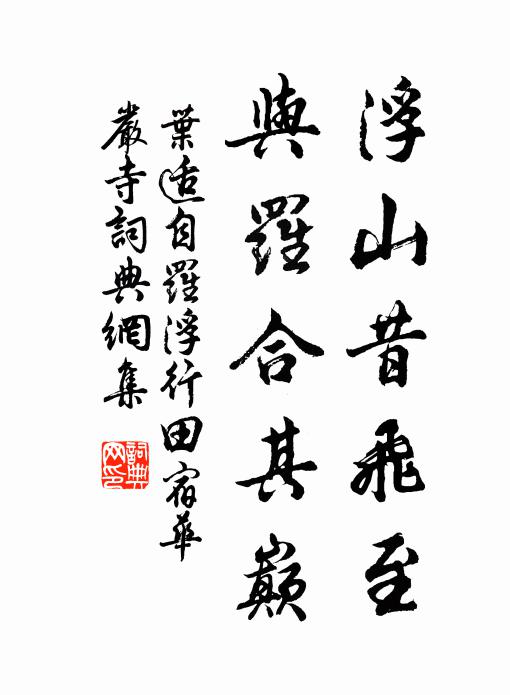 浮山昔飛至
與羅合其巔
葉适自羅浮行田宿華
嚴寺詞典網集
詞典
网印